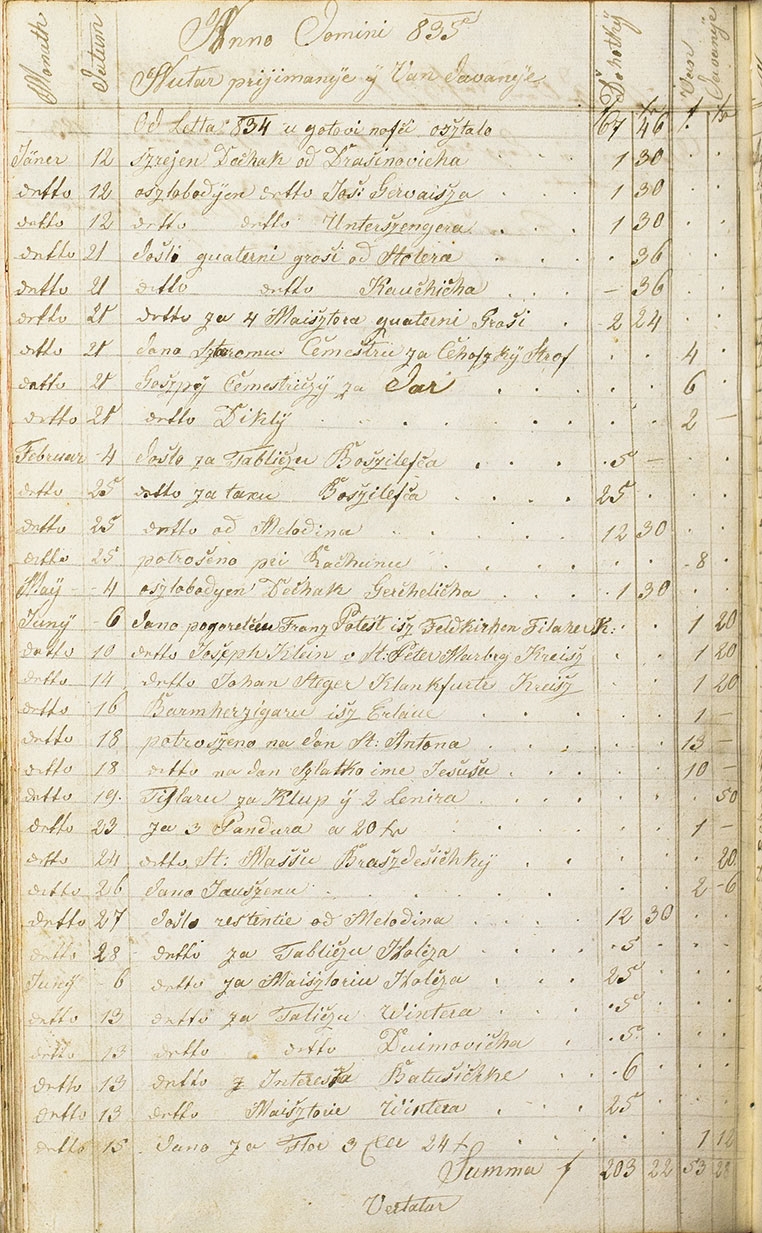 Anno Domini 835
Month Datum Nutar prijimanÿe ÿ Van Davanÿe Dohotkÿ Van Davanÿe
f x f x
Od Letta 834 u gotovi nosči osztalo 67 46
Jäner 12 szrejen Dečhak od Drašinovicha 1 30
detto 12 oszlobodÿen detto Jos: Gervaisza 1 30
detto 12 detto detto Unterszengera 1 30
detto 21 Došli quaterni groši od Stolera 36
detto 21 detto detto Kauchicha – 36
detto 21 detto za 4 Maisztora quaterni Groši 2 24
detto 21 Dano Sztaromu Čemeštru za Čehoszkÿ Strof 4
detto 21 Goszpÿ Čemestriczÿ za Dar 6
detto 21 detto Diklÿ 2 –
Februar 4 Došlo za Tabliczu Boszilefča 5 –
detto 25 detto za taxu Boszilefča 25
detto 25 detto od Melodina 12 30
detto 25 potrošeno pri Rachunu 8
Maÿ 4 oszlobodyen Dečhak Gerchelicha 1 30
Junÿ 6 Dano pogorelčeu Franz Potest isz Feldkirhen Filaher K: 1 20
detto 10 detto Joseph Klein o St: Peter Marbrg Kreisz 1 20
detto 14 detto Johan Steger Klankfurtr Kreisz 1 20
detto 16 Barmherzigaru isz Erlau 1 –
detto 18 potroszeno na dan St: Antona 13 –
detto 18 detto na dan Szlatko ime Jesuša 10 –
detto 19. Tišlaru za Klup ÿ 2 Lenira 50
detto 23 za 3 Pandura a 20 x 1 –
detto 24 detto St: Mašsu Braszdešichkÿ 20
detto 26 Dano Jauszenu 2 –6
detto 27 Došlo restentie od Melodina 12 30
detto 28 detto za Tabliczu Holcza 5
Junÿ 6 detto za Maisztoriu Holcza 25
detto 13 detto za Taliczu Wintera 5
detto 13 detto detto Duimovicha 5
detto 13 detto z Interesša Batušichke 6
detto 13 detto Maisztorie Wintera 25
detto 15 Dano za Flor 3 24 x 1 12
Summa f 203 22 53 28
Vertatur